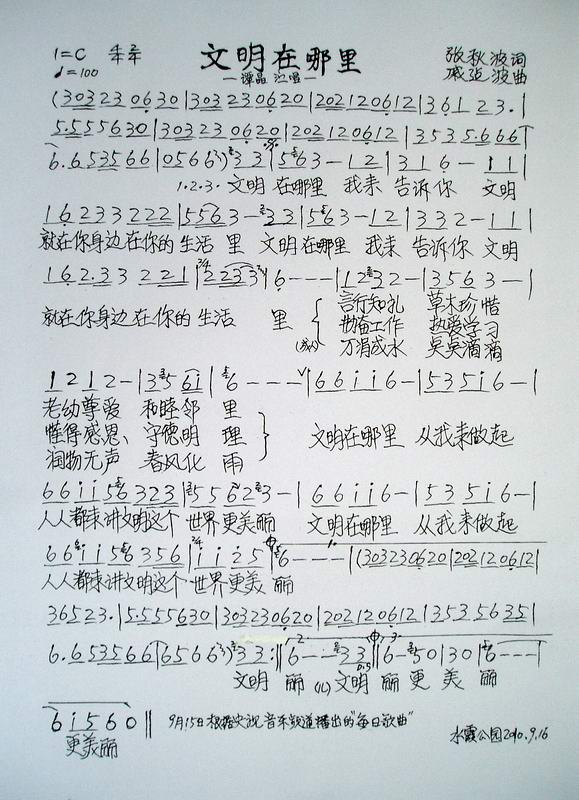 1=C 4/4 2/4
♩=100
文明在哪里
—谭晶 演唱—
张秋波词
戚建波曲
(3032306 30|3032306 20|202120612|36123.|
5.5555630|303230620|202120612|35355.666|
6.6535566|0566 33|563-12|316-11|
1.2.3.文明 在哪里 我来 告诉你 文明
162333222|5563-33|563-12|332-11|
就在你身边在你的生活 里 文明在哪里 我来 告诉你 文明
162.33221|2233|6---|1232-|3563-|
就在你身边在你的生活 里 言行知礼 草木珍惜
勤奋工作 热爱学习
万涓成水 点点滴滴
1212-|3561|6---|6611 6-|5351 6-|
老幼尊爱 和睦邻 里
懂得感恩、守德明 理 文明在哪里 从我来做起
润物无声 春风化 雨
661156323|556 23-|66116-|53516-|
人人都来讲文明这个 世界更美丽 文明在哪里 从我来做起
661156356|1125|6---|(303230620|202120612|
人人都来讲文明这个 世界更美 丽
36523.|5.5555630|303230620|202120612|35356351|
6.6535566|6566)33:|6--33|6-50|30|6---|
文明 丽 文明 丽 更 美 丽
61560‖ 9月15日根据央视音乐频道播出的“每日歌曲”
更美丽
水霞公园2010.9.16